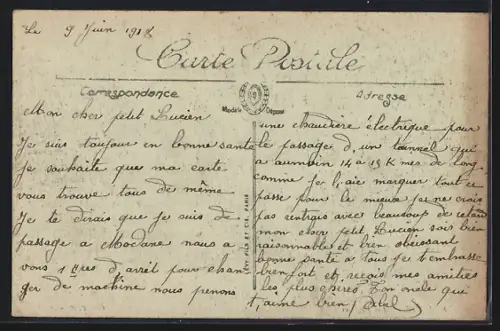 Le 9 Juin 1918
Carte Postale
Correspondance
Adresse
Modèle Déposé
Mon cher petit Lucien
Je suis toujour en bonne sante
je souhaite que ma carte
vous trouve tous de même
Je te dirais que je suis de
passage a Modane nous a
vons 1 d'arrêt pour chan
ger de machine nous prenons
LÉVY FILS ET CIE, PARIS
une chaudiere électrique pour
le passage d,un tunnel qui
a aumoin 14 a 15 K de long
comme je l,ai marquer tout ce
passe pour le mieux je ne crois
pas rentrais avec beaucoup de retard
mon cher petit Lucien sois bien
raisonnable et bien obeissant
bonne sante a tous je t'embrasse
bien fort et reçois mes amities
les plus cheres Ton oncle qui
t,aime bien